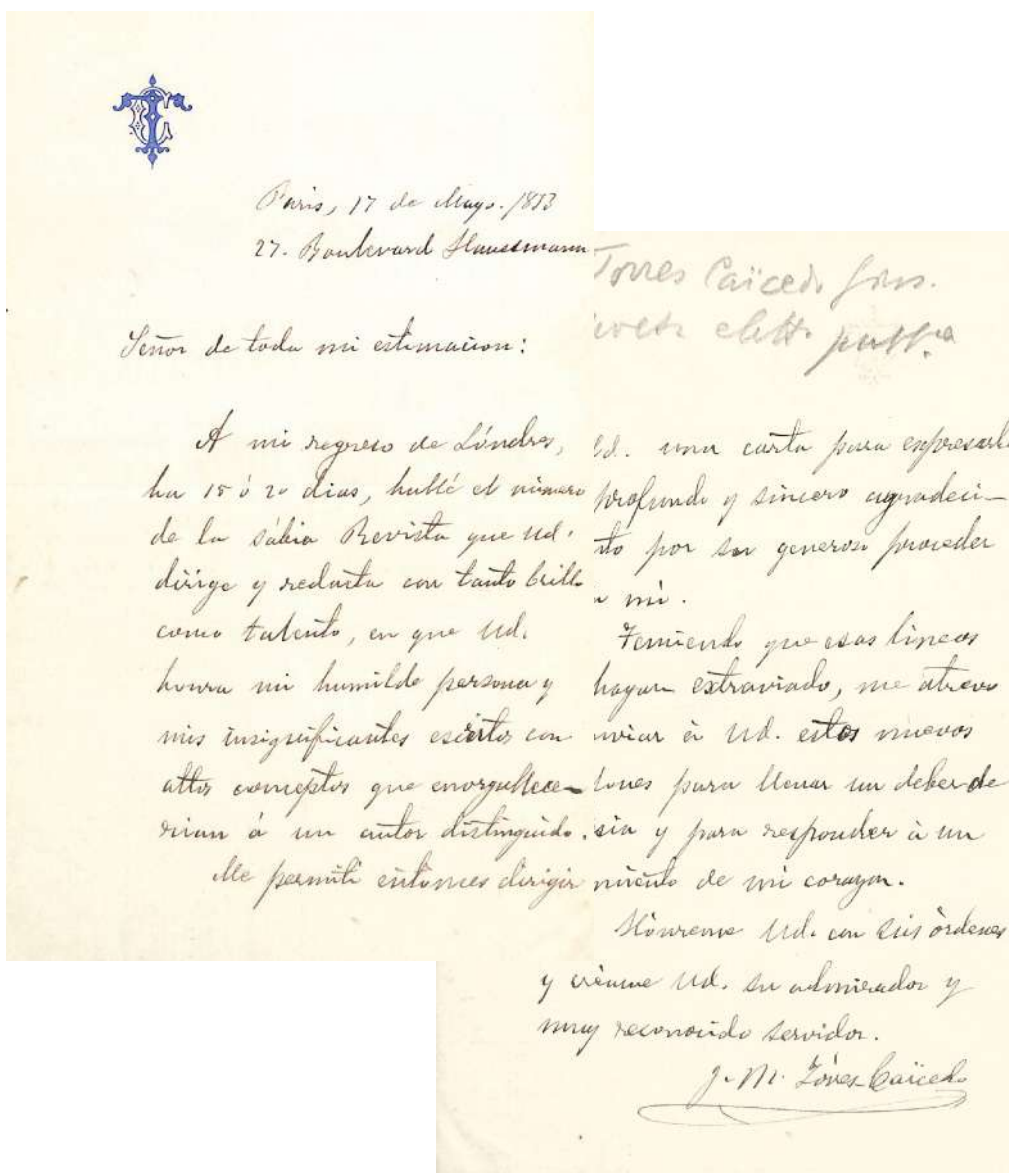 TC
Paris, 17 de Mayo. 1883
27. Boulevard Haussmann
Señor de toda mi estimacion:
A mi regreso de Lóndres,
ha 15 ó 20 dias, hallé el número
de la sábia Revista que Ud.
dirige y redacta con tanto brillo
como talento, en que Ud.
honra mi humilde persona y
mis insignificantes escritos con
altos conceptos que enorgullece-
rian á un autor distinguido.
Me permití entonces dirigir
Torres Caïcedo
Ud. una carta para expresarle
profundo y sincero agradeci-
to por su generoso proceder
mi.
Temiendo que esas líneas
hayan extraviado, me atrevo
enviar á Ud. estos nuevos
lones para llenar un deber de
sia y para responder á un
miento de mi corazon.
Hónreme Ud. con sus órdenes
y créame Ud. su admirador y
muy reconocido servidor.
J. M. Tórres Caïcedo